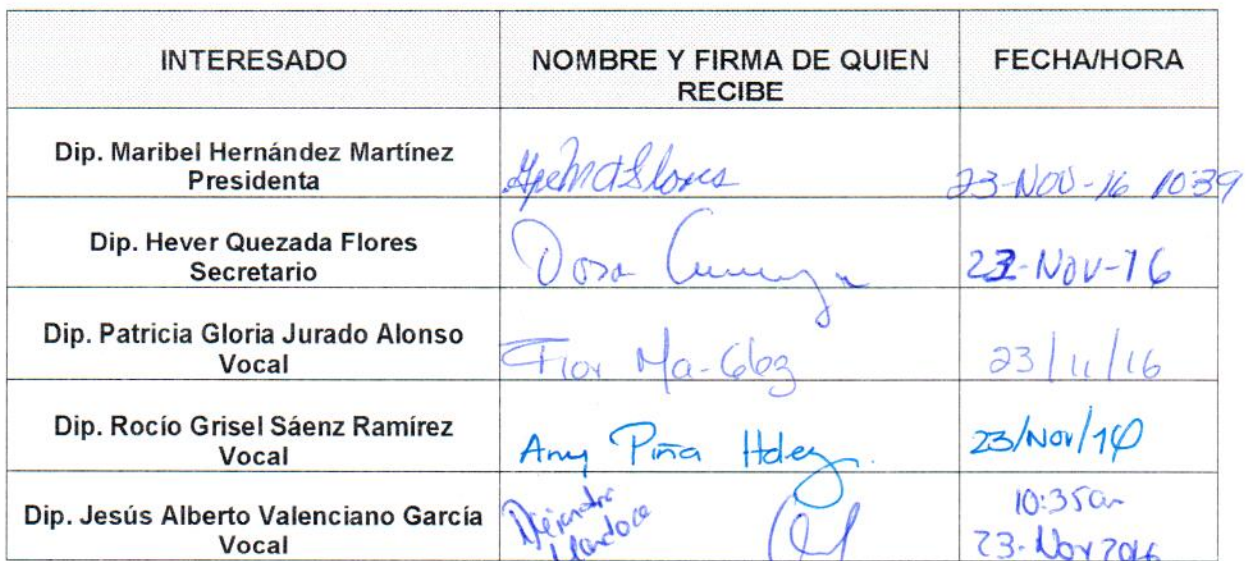 INTERESADO
NOMBRE Y FIRMA DE QUIEN
RECIBE
FECHA/HORA
Dip. Maribel Hernández Martínez
Presidenta
Flores
23-NOV-16 10:39
Dip. Hever Quezada Flores
Secretario
23-Nov-16
Dip. Patricia Gloria Jurado Alonso
Vocal
Flor Ma-Glez
23/11/16
Dip. Rocío Grisel Sáenz Ramírez
Vocal
Any Piña Hdez.
23/Nov/16
Dip. Jesús Alberto Valenciano García
Vocal
Alejandra
Mendoza
10:35am
23-Nov 2016